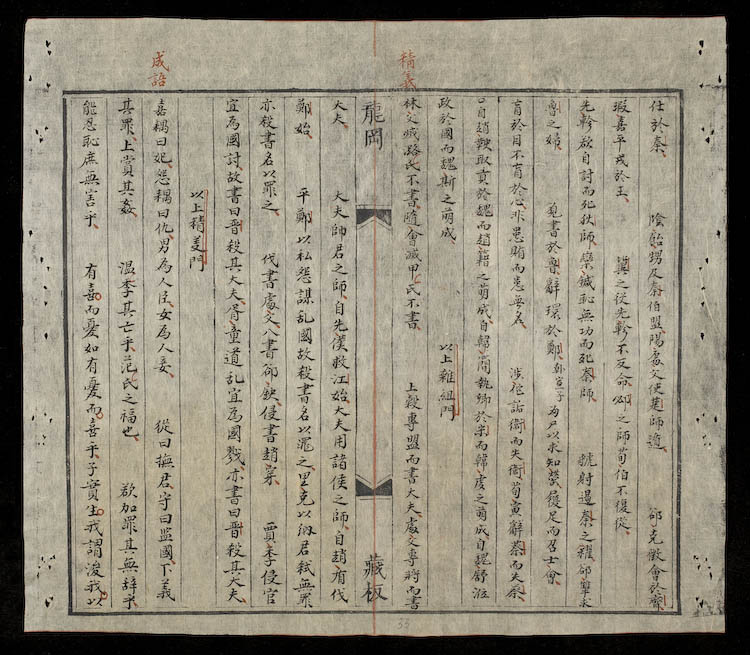 仕於秦、 陰飴甥及秦伯盟陽處父使楚師遁、 郤克徵會於齊
瑕嘉平戎於王、 之役先軫不反命、邲之師荀伯不復從、
先軫敢自討而死狄師、欒鍼恥無功而死秦師、
魯之婦、 於魯辭環於鄭韓宣子 為尸以求知罃、足而召士會、
言於目不言於心、非患賄而患無名、 涉佗詬衛而失衛、荀寅辭蔡而失蔡、
自趙鞅取貢於魏而趙籍之萌成、自韓簡執卿於宋而韓虔之萌成、自魏舒涖
政於國而魏斯之萌成、
以上雜組門
林父滅潞氏不書、隨會滅甲氏不書、 上穀專盟而書大夫、處父專將而書
龍岡
藏板
大夫、 大夫師君之師自先僕救江始、大夫用諸侯之師自趙有伐
鄭始、 平鄭以私怨謀乱國故殺書名以罪之、里克以納君弒無罪
亦殺書名以罪之、 伐書處父八書郤缺、侵書趙穿、 賈季侵官
宜為國討故書曰晋殺其大夫、胥童道乱宜為國戮亦書曰晋殺其大夫、
以上精義門
嘉耦曰妃、怨耦曰仇、男為人臣、女為人妾、 從曰撫君、守曰監國、下義
其罪、上賞其姦、 溫季其亡乎、范氏之福也、 欲加罪其無辞乎
能忍恥庶無害乎、 有喜而憂如有憂而喜乎、子實生我謂浚我以
精義
成語
33